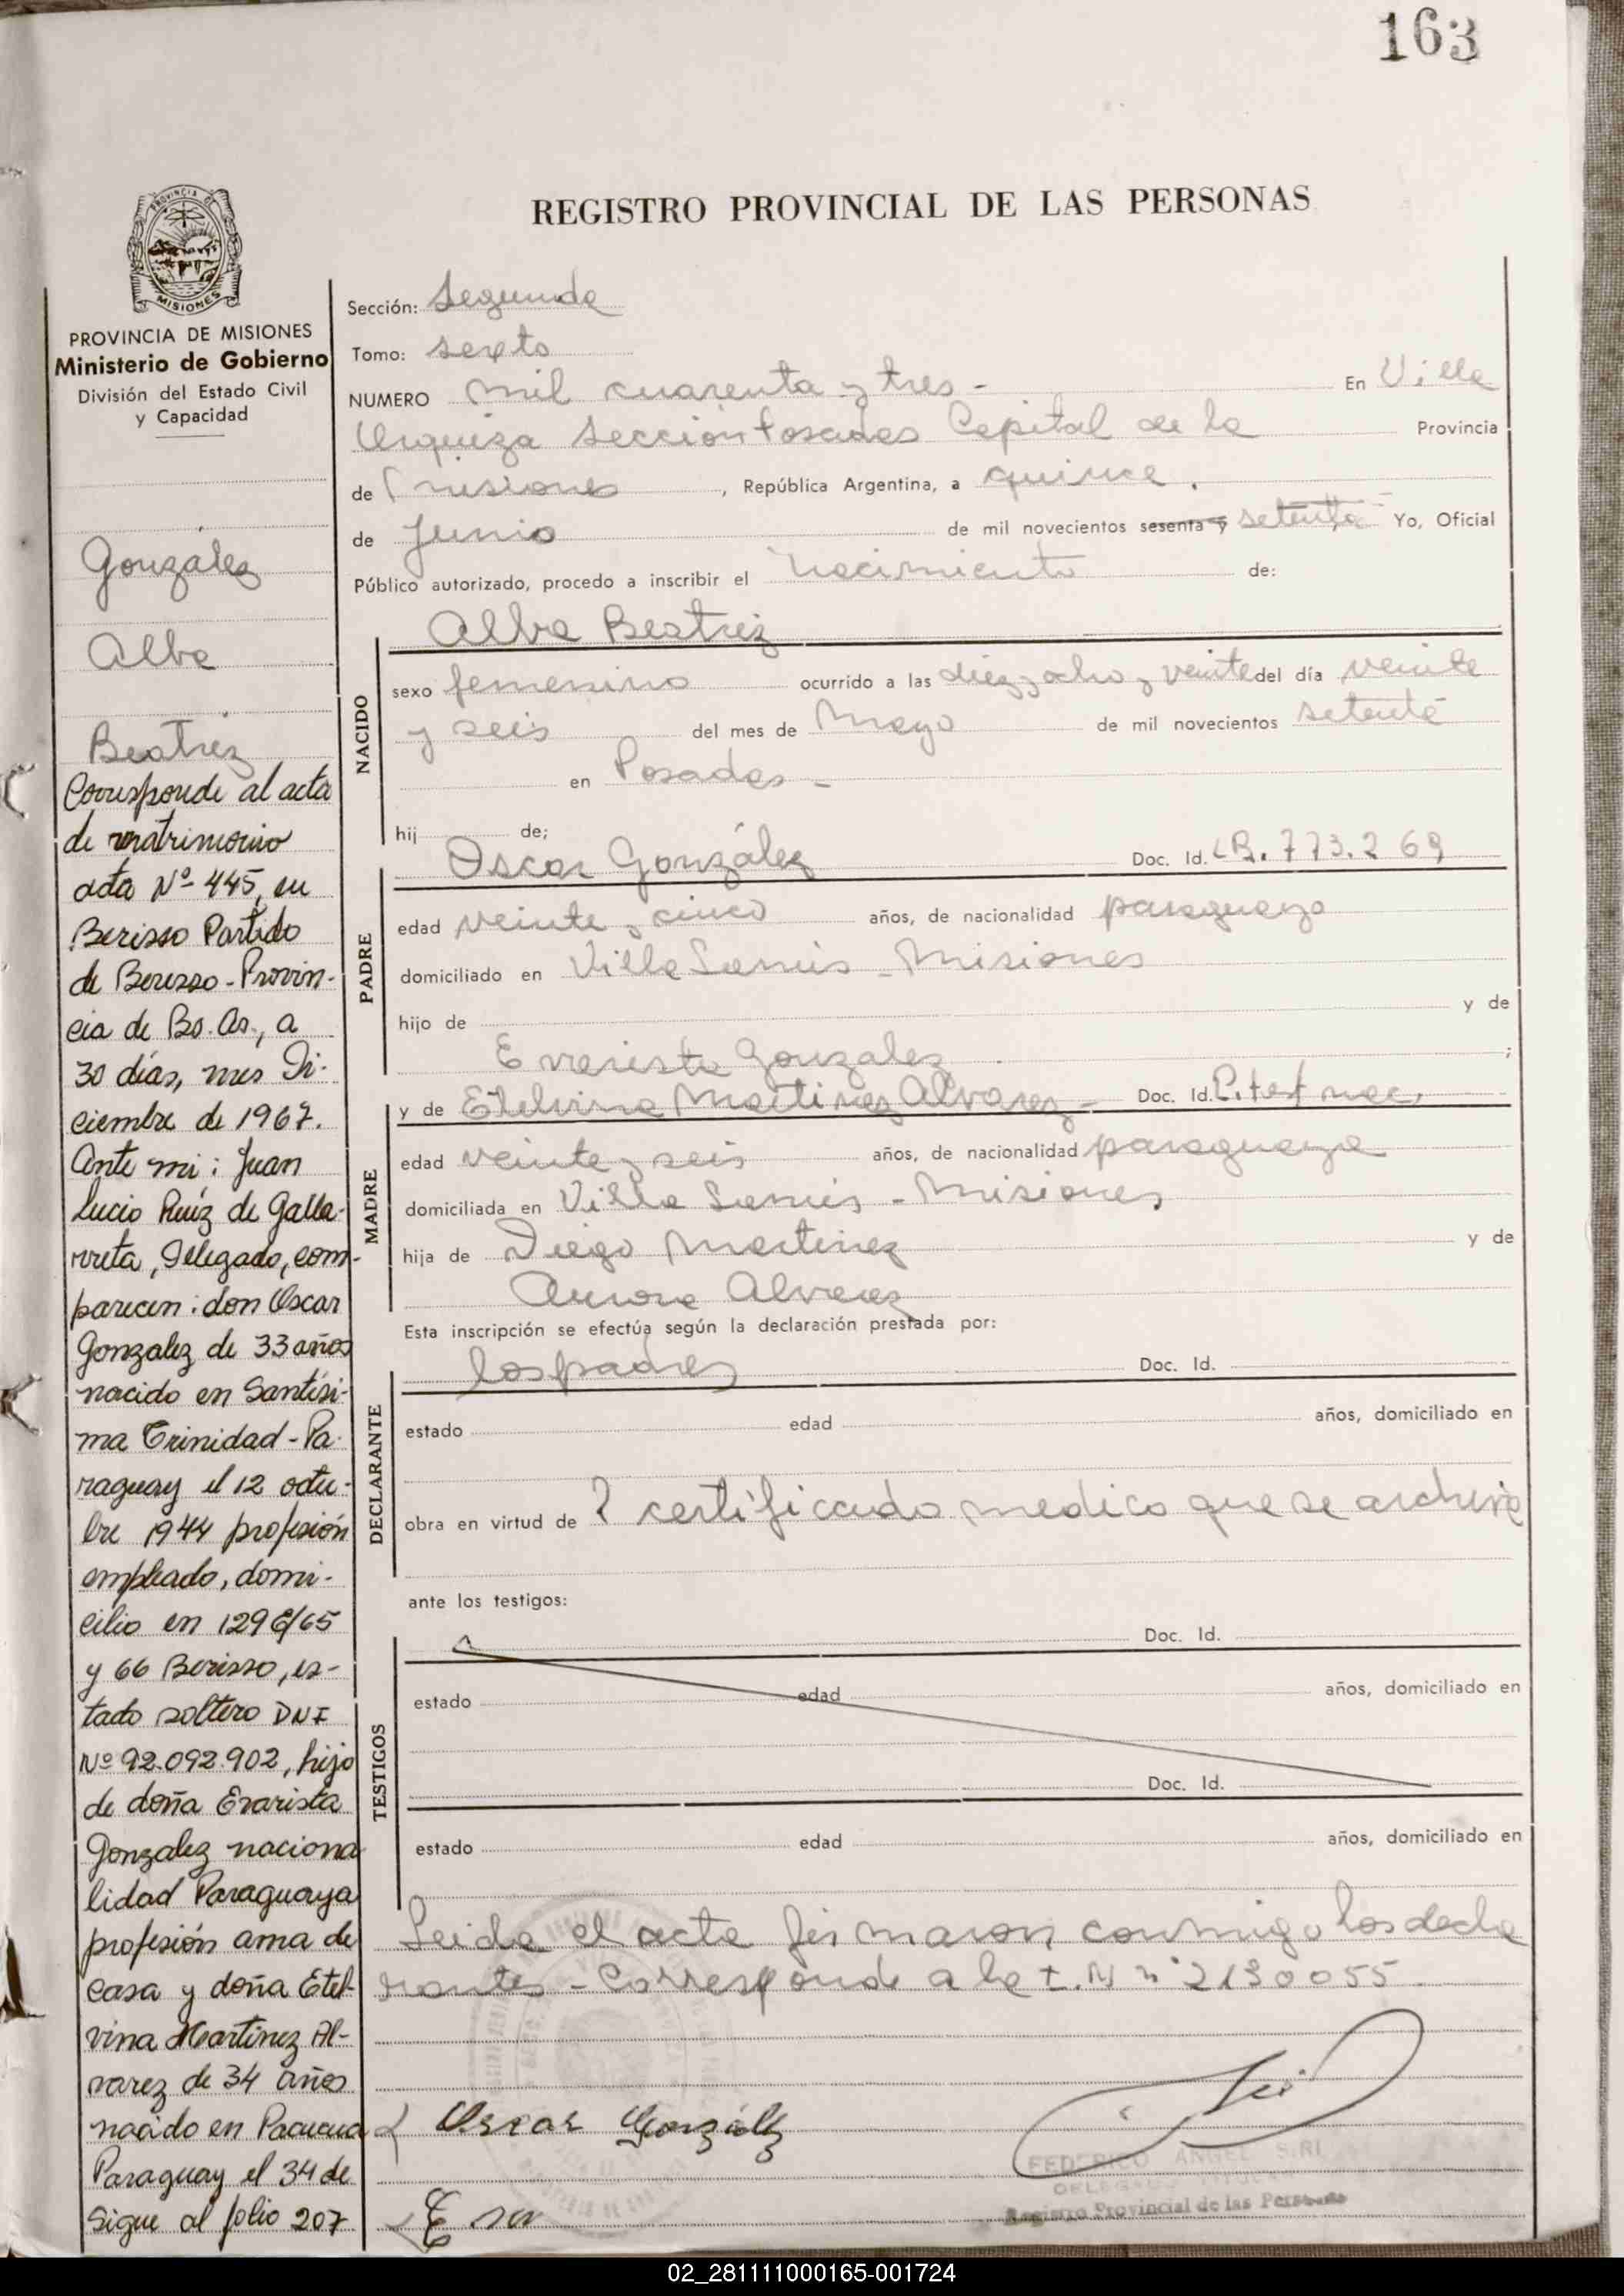 163
REGISTRO PROVINCIAL DE LAS PERSONAS
PROVINCIA DE MISIONES
Ministerio de Gobierno
División del Estado Civil
y Capacidad
González
Alba
Beatriz
Corresponde al acta
de matrimonio
acta Nº 445, en
Berisso Partido
de Berisso - Provin-
cia de Bs. As., a
30 días, mes Di-
ciembre de 1967.
Ante mi: Juan
Lucio Ruíz de Galla-
rreta, Delegado, com-
parecen: don Oscar
Gonzalez de 33 años
nacido en Santísi-
ma Trinidad - Pa-
raguay el 12 octu-
bre 1944 profesión
empleado, domi-
cilio en 129 e/65
y 66 Berisso, es-
tado soltero DNI
Nº 92.092.902, hijo
de doña Evarista
Gonzalez naciona
lidad Paraguaya
profesión ama de
casa y doña Etel-
vina Martinez Al-
varez de 34 años
nacido en
Paraguay el 34 de
Sigue al folio 207
Sección: Segunda
Tomo: sexto
NUMERO mil cuarenta y tres - En Villa
Urquiza Sección Posadas Capital de la Provincia
de Misiones, República Argentina, a quince.
de Junio de mil novecientos sesenta y setenta Yo, Oficial
Público autorizado, procedo a inscribir el nacimiento de:
Alba Beatriz
NACIDO
sexo femenino ocurrido a las diez y ocho y veinte del día veinte
y seis del mes de Mayo de mil novecientos setenta
en Posadas -
hij de;
Oscar González Doc. Id. CR. 773.269
PADRE
edad veinte y cinco años, de nacionalidad paraguayo
domiciliado en Villa Lanús - Misiones
hijo de y de
Evarista Gonzalez ;
y de Etelvina Martinez Alvarez - Doc. Id.
MADRE
edad veinte y seis años, de nacionalidad paraguaya
domiciliada en Villa Lanús - Misiones
hija de Diego Martinez y de
Aurora Alvarez
Esta inscripción se efectúa según la declaración prestada por:
los padres Doc. Id.
DECLARANTE
estado edad años, domiciliado en
obra en virtud de certificado medico que se archiva
ante los testigos:
Doc. Id.
TESTIGOS
estado edad años, domiciliado en
Doc. Id.
estado edad años, domiciliado en
Leida el acta firmaron conmigo los decla
rantes - Corresponde a la L. N nº 2130055
Oscar González
FEDERICO ANGEL SIRI
Registro Provincial de las Personas
02_281111000165-001724